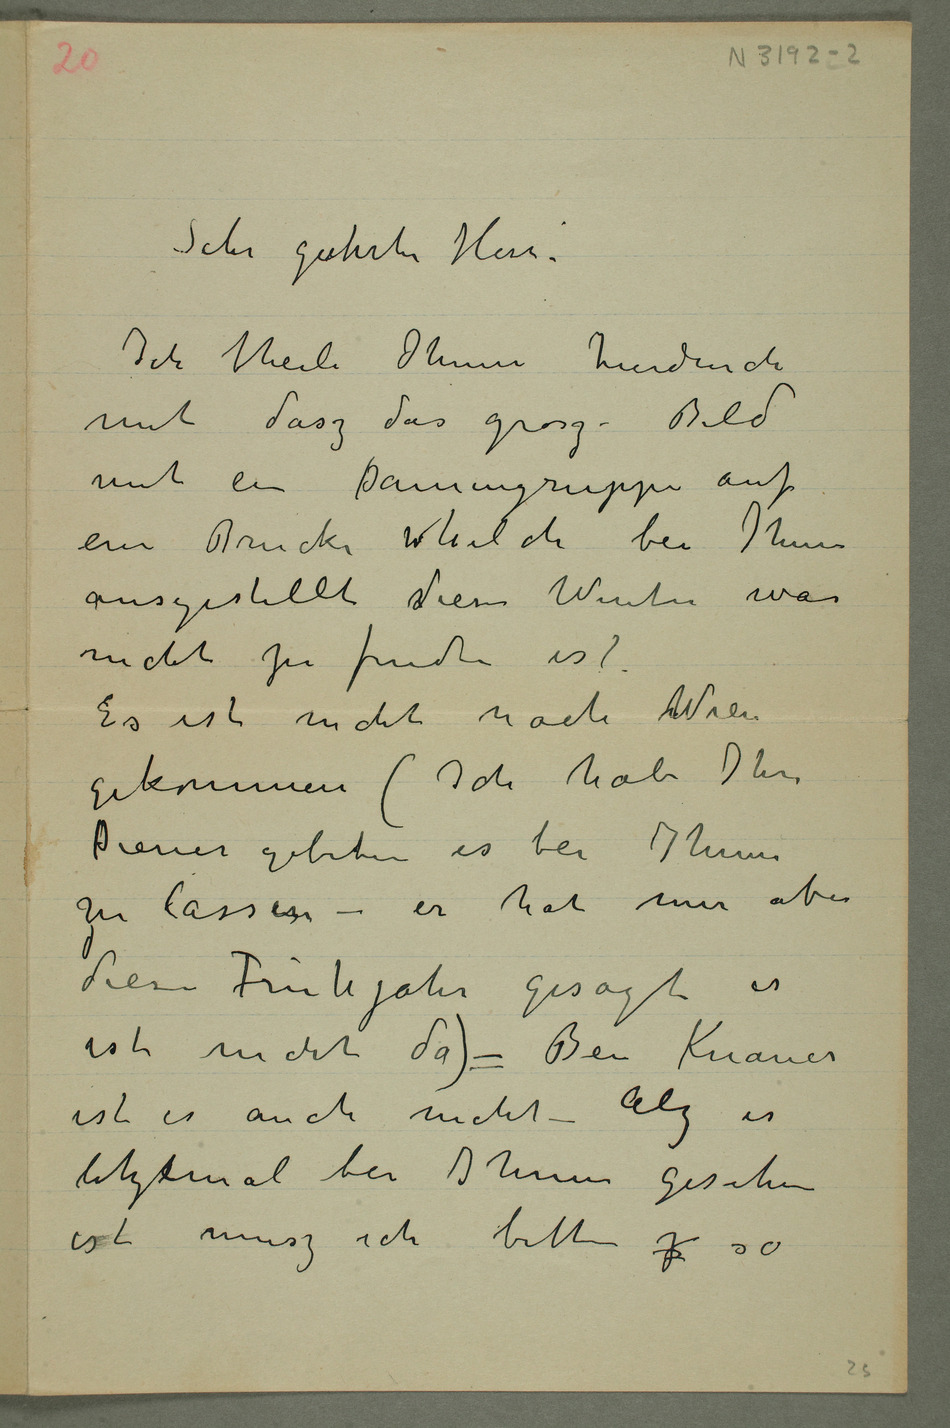 20
N 3192-2
Sehr geehrter Herr.
Ich theile Ihnen hierdurch
mit dasz das grosz- Bild
mit ein Damengruppe auf
einer Brücke whelche bei Ihnen
ausgestellt diesen Winter war
nicht zu finden ist.
Es ist nicht nach Wien
gekommen (Ich habe Ihre
Diener gebeten es bei Ihnen
zu lassen – er hat mir aber
diesen Frühjahr gesagt es
ist nicht da) – Bei Knauer
ist es auch nicht – Alz es
letztmal bei Ihnen gesehen
ist musz ich bitten so
25